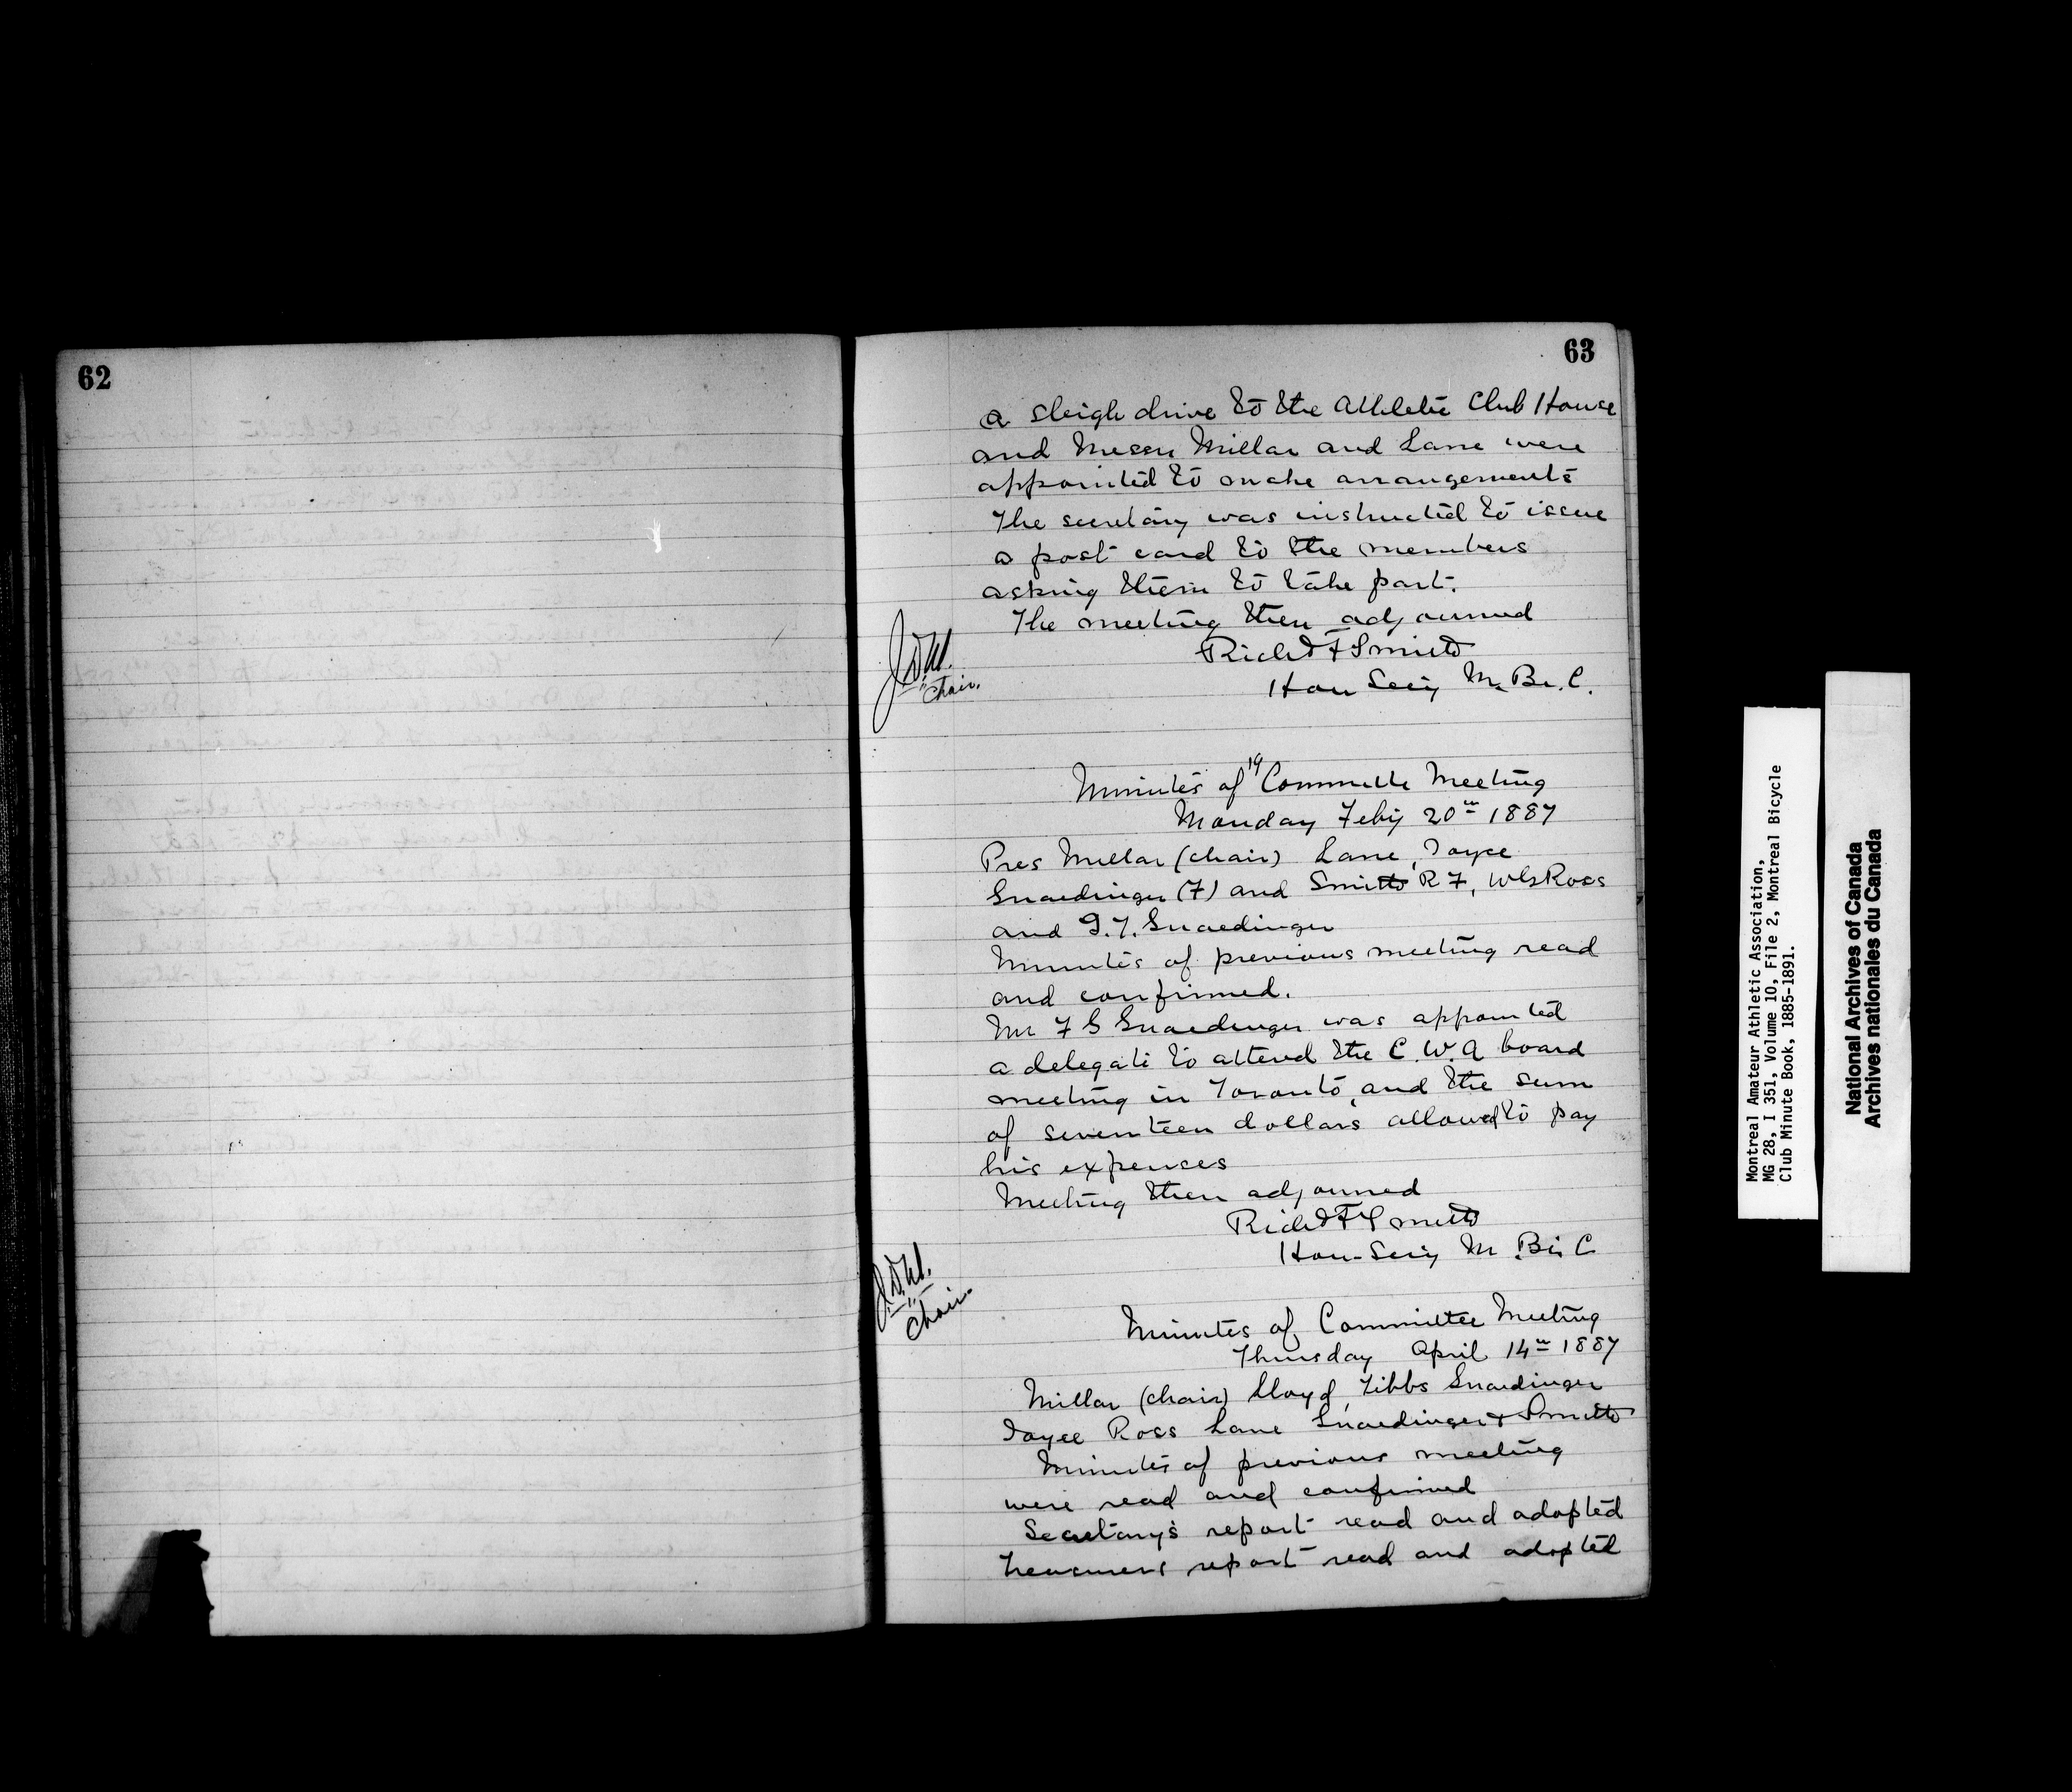 62
63
a sleigh drive to the Athletic Club House
and Messrs Millar and Lane were
appointed to make arrangements
The secretary was instructed to issue
a post card to the members
asking them to take part.
The meeting then adjourned
Richd F Smith
Hon Secy M. Bi. C.
Chair.
Minutes of 19 Committe Meeting
Monday Feby 20th 1887
Pres Millar (chair) Lane, Joyce
Snaedinger (F) and Smith R F, W G Ross
and G. T. Snaedinger
Minutes of previous meeting read
and confirmed.
Mr F G Gnaedinger was appointed
a delegate to attend the C. W. A board
meeting in Toronto, and the sum
of seventeen dollars allowed to pay
his expenses
Meeting then adjourned
Richd F Smith
Hon-Secy M. Bi. C
Chair.
Minutes of Committee Meeting
Thursday April 14th 1887
Millar (chair) Lloyd, Tibbs Gnaedinger
Joyce Ross Lane Gnaedinger & Smith
Minutes of previous meeting
were read and confirmed
Secretary's report read and adopted
Treasurers report read and adopted
Montreal Amateur Athletic Association,
MG 28, I 351, Volume 10, File 2, Montreal Bicycle
Club Minute Book, 1885-1891.
National Archives of Canada
Archives nationales du Canada